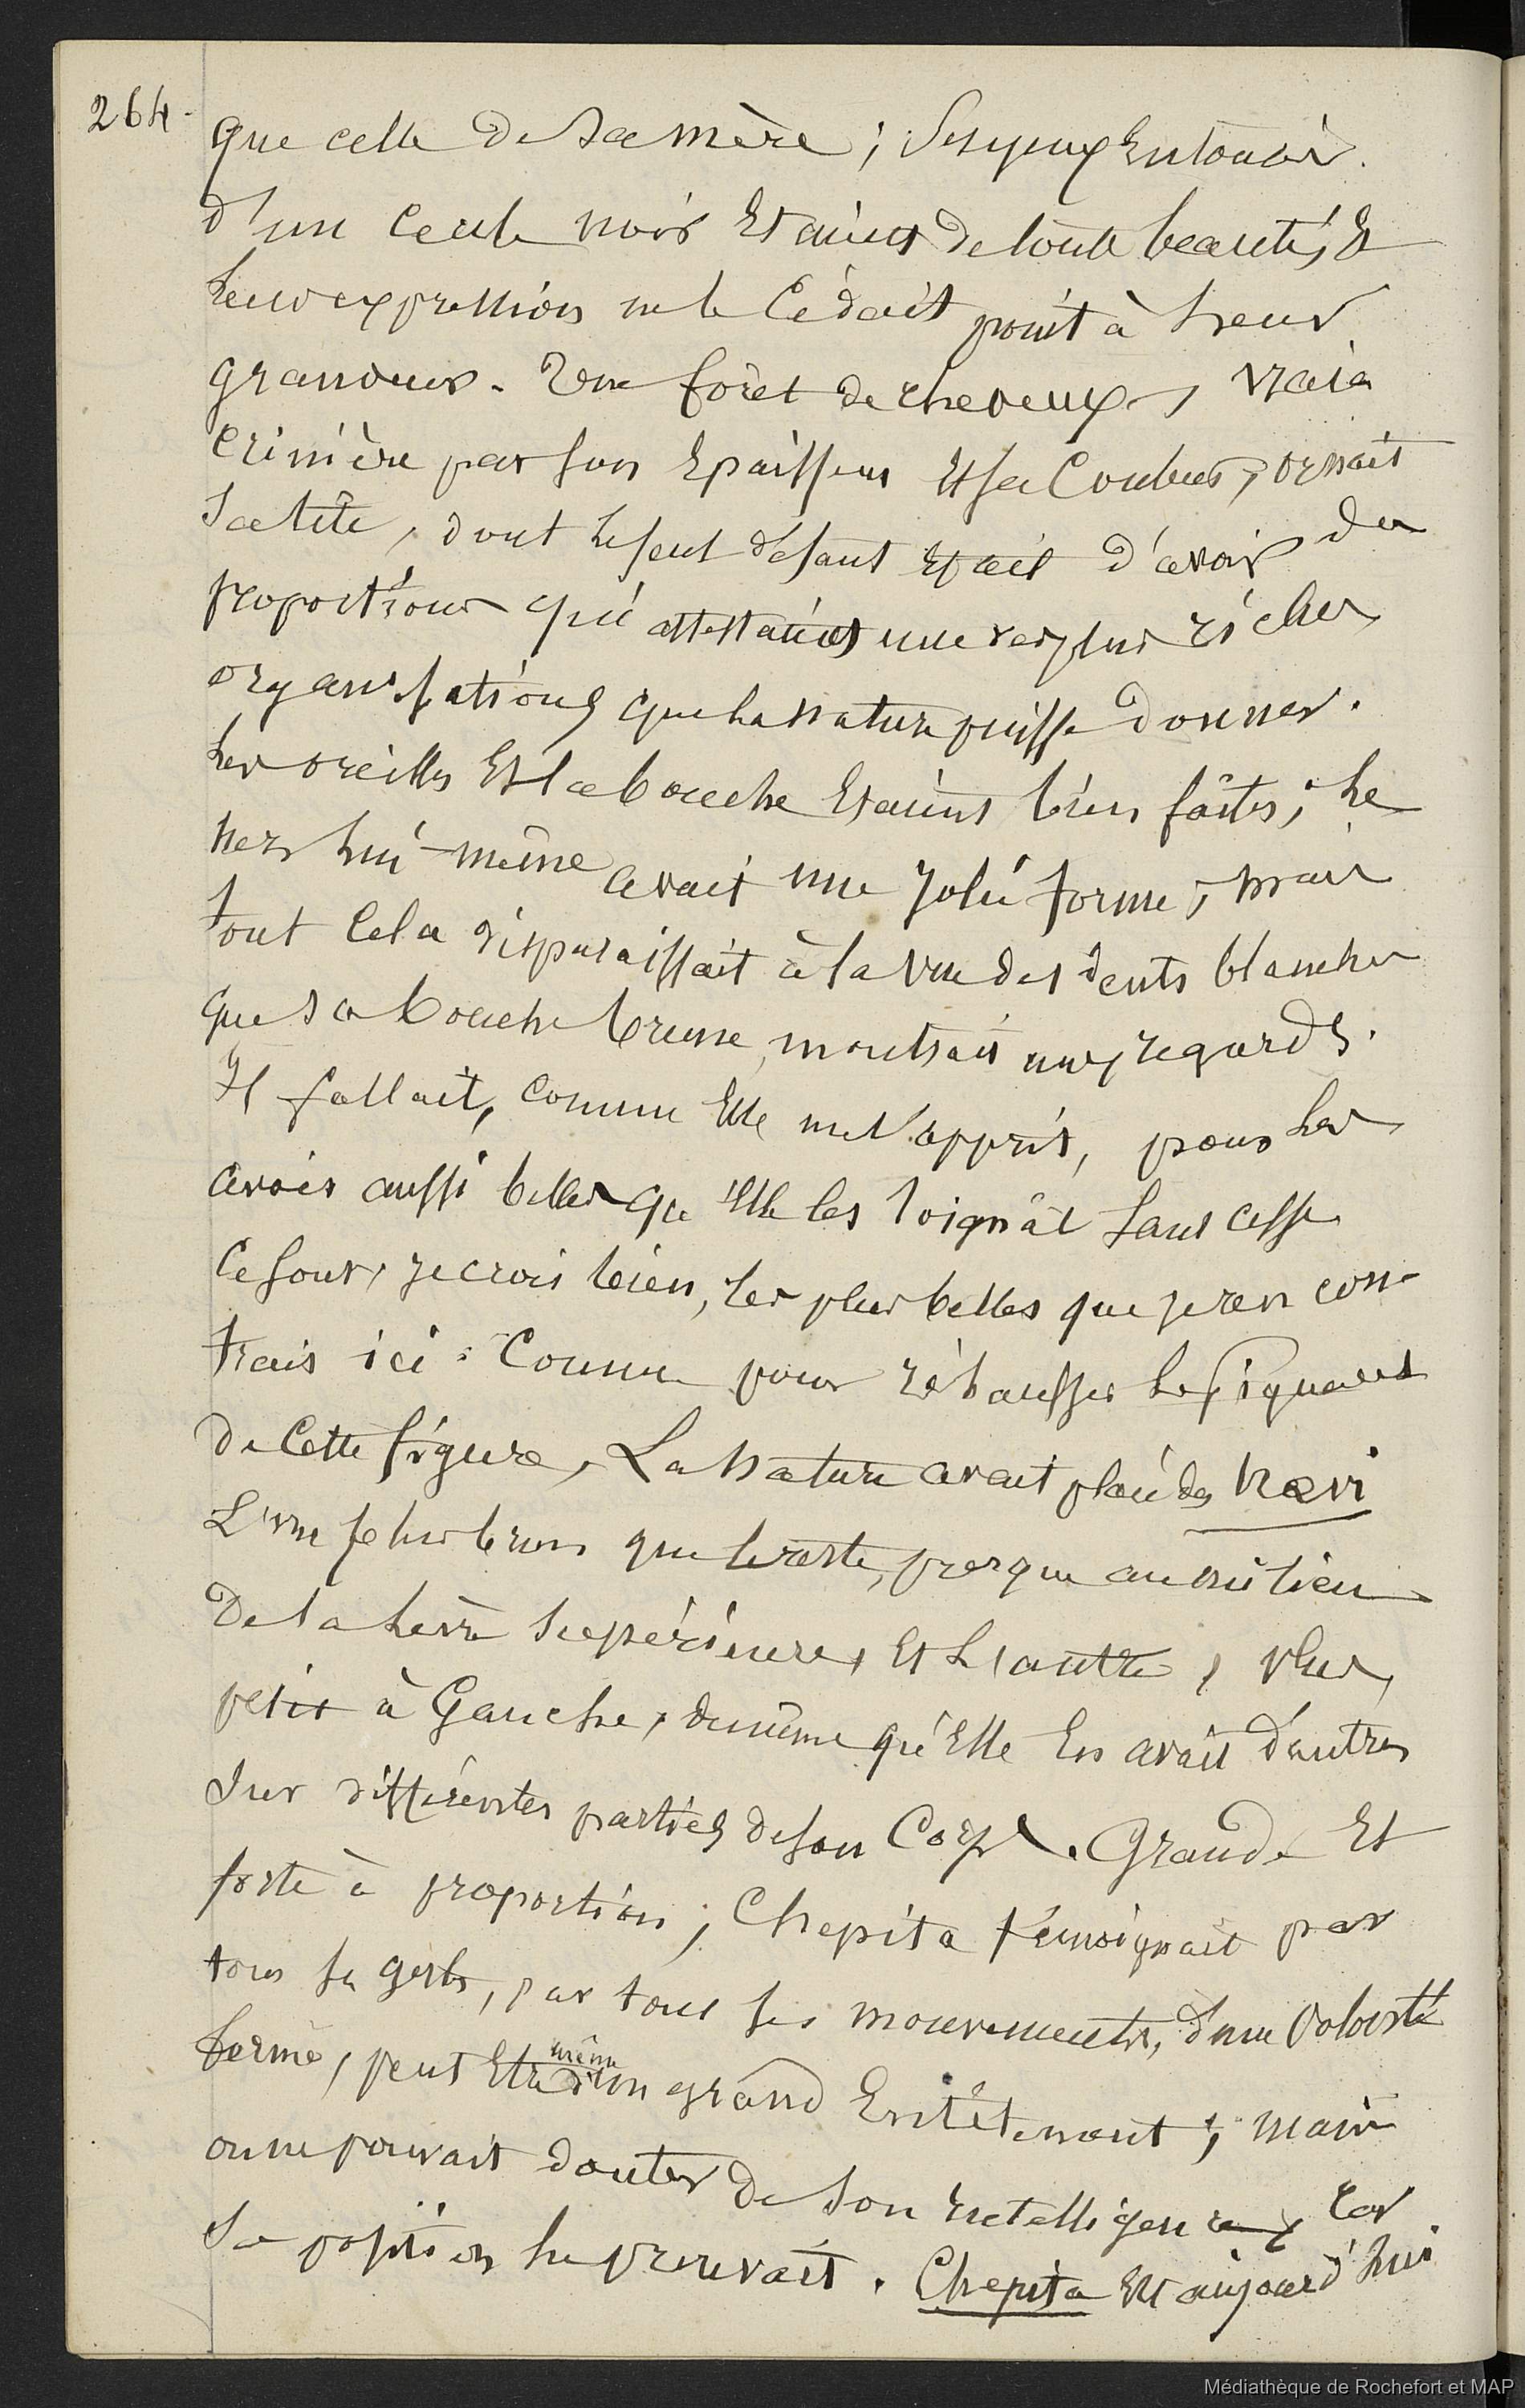 264-
que celle de sa mère ; Ses yeux Entourés
d'un Cercle noir Etaient de toute beauté, Et
leur expression ne le Cédait point à leur
grandeur. Une forêt de cheveux, vraie
Crinière par son Epaisseur Et sa Couleur, ornait
sa tête, dont le seul défaut Etait d'avoir des
proportions qui attestaient une des plus riches
organisations que la nature puisse donner.
Les oreilles Et la bouche Etaient bien faites ; le
nez lui-même avait une jolie forme ; mais
tout Cela disparaissait à la vue des dents blanches
que sa bouche brune, montrait aux regards.
Il fallait, comme Elle me l'apprit, pour les
avoir aussi belles qu'Elle les soignât sans cesse
Ce sont, je crois bien, les plus belles que je ren con-
trais ici. Comme pour réhausser le piquant
de Cette figure, La Nature avait placé des nævi
L'un plus brun que le reste, presque au milieu
De la lèvre supérieure, Et L'autre, plus
petit à Gauche, de même qu'Elle En avait d'autres
sur différentes parties de son Corps. Grande Et
forte à proportion ; Chepita témoignait par
tous ses gestes, par tous ses mouvements, d'une Volonté
ferme, peut Etre même d'un grand Entêtement ; mais
on ne pouvait douter de son Intelligence, car
Sa position le prouvait. Chepita Est aujourd'hui
Médiathèque de Rochefort et MAP